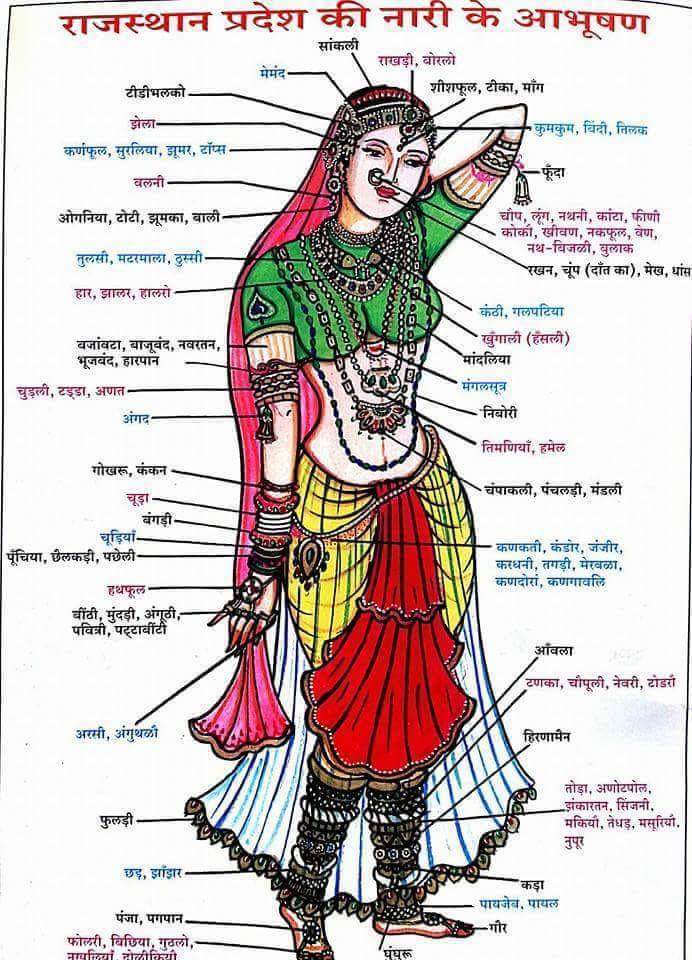 राजस्थान प्रदेश की नारी के आभूषण
सांकली
राखड़ी, बोरलो
मेमंद
शीशफूल, टीका, माँग
टीडीभलको
झेला
कुमकुम, बिंदी, तिलक
कर्णफूल, सुरलिया, झूमर, टॉप्स
फूँदा
वलनी
ओगनिया, टोटी, झूमका, बाली
चौप, लूंग, नथनी, कांटा, फीणी
कोकी, खीवण, नकफूल, वेण,
नथ-बिजली, बुलाक
तुलसी, मटरमाला, ठुस्सी
रखन, चूंप (दाँत का), मेख, धांस
हार, झालर, हालरो
कंठी, गलपटिया
खुँगाली (हँसली)
बजांबटा, बाजूबंद, नवरतन,
भूजबंद, हारपान
मांदलिया
मंगलसूत्र
चुड़ली, टड्डा, अणत
निबोरी
अंगद
तिमणियाँ, हमेल
गोखरू, कंकन
चंपाकली, पंचलड़ी, मंडली
चूड़ा
बंगड़ी
चूड़ियाँ
पूँचिया, छैलकड़ी, पछेली
कणकती, कंडोर, जंजीर,
करधनी, तगड़ी, मेरवळा,
कणदोरां, कणगावलि
हथफूल
बींठी, मुंदड़ी, अंगूठी,
पवित्री, पट्टाबींटी
आँवला
टणका, चौपूली, नेवरी, टोडरौ
अरसी, अंगुथळौ
हिरणामैन
तोड़ा, अणोटपोल,
झंकारतन, सिंजनी,
मकियौ, तेधड़, मसूरियौ,
नुपूर
फुलड़ी
छड़, झाँझर
कड़ा
पायजेब, पायल
पंजा, पगपान
गौर
फोलरी, बिछिया, गुठलो,
घुंघरू